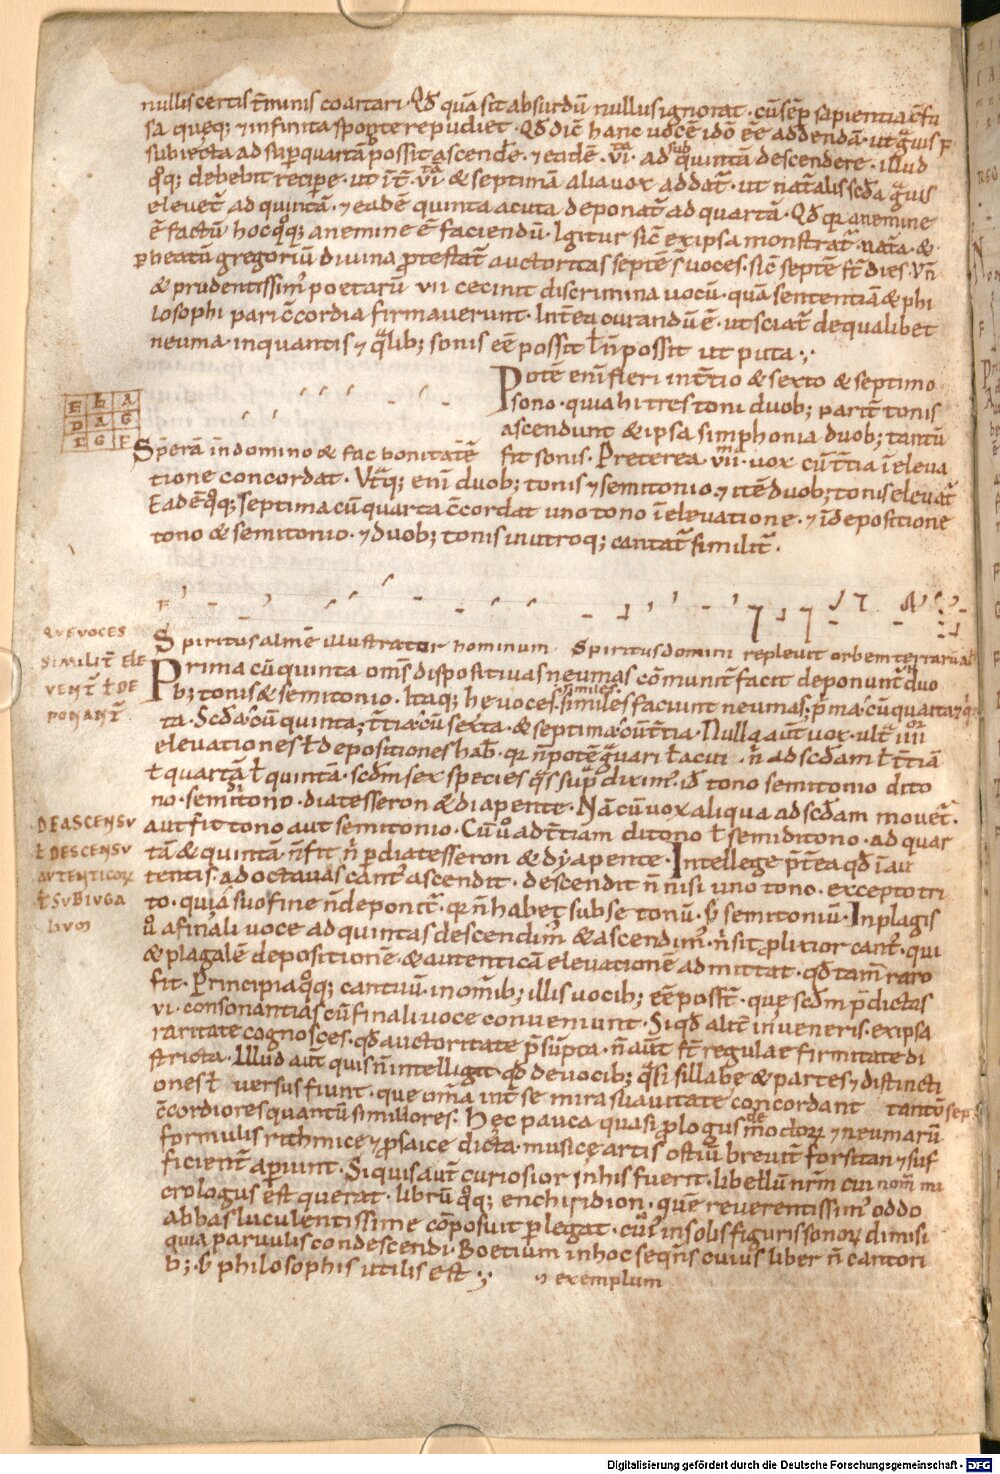 nulliscertis t̄minis coartari. Qd̄ quā sit absurdū nullus ignorat. cū sēp sapientia c̄fu
sa queq; ⁊ infinita sponte repudiet. Qd̄ dic̄ hanc uocē idō eē addendā. ut gͣuis F
subiecta ad sup̄ quartā possit ascende. ⁊ eadē .vi. ad sub quintā descendere. illud
qͦq; debebit recipe. ut int̄ .vi. & septimā alia uox addat̄. ut nat̄alis scd̄a gͣuis
eleuet̄ ad quintā. ⁊ eadē quinta acuta deponat̄ ad quartā. Qd̄ qr anemine
ē factū hoc qͦq; anemine ē faciendū. Igitur sic̄ ex ipsa monstrat̄ nat̄a. &
ꝑ beatū gregoriū diuina ꝓtestat̄ auctoritas septē s̄ uoces. sic̄ septē st̄ dies. Vn̄
& prudentissim' poetarū vii cecinit discrimina uocū. quā sententiā & phi
losophi pari c̄cordia firmauerunt. Int̄ea curandū ē. ut sciat̄ de qualibet
neuma. in quantis ⁊ qͣlib; sonis eē possit ł n̄ possit ut puta.
Potē eni fieri in t̄tio & sexto & septimo
E ♮ A
sono. quia hi tres toni duob; parit̄ tonis
D A G
ascendunt & ipsa simphonia duob; tantū
E G F
Sperā in domino & fac bonitatē
fit sonis. Preterea .viii. uox cū t̄tia ī eleua
tione concordat. Vt̄q; eni duob; tonis ⁊ semitonio. ⁊ itē duob; tonis eleuat̄
Eadē qͦq; septima cū quarta c̄cordat uno tono ī eleuatione. ⁊ ī depositione
tono & semitonio. ⁊ duob; tonis in utroq; cantat̄ similit̄.
F
Spiritus alme illustrator hominum. Spiritus domini repleuit orbem terrarū al
QVE VOCES
SIMILIT̄ ELE
VENT̄ ł DE
PONANT̄
Prima cū quinta om̄s dispositiuas neumas cōmunit̄ facit deponunt̄ duo
b; tonis & semitonio. Itaq; he uoces similes similes faciunt neumas; p̄ma cū quarta ⁊ q
ta. Scd̄a cū quinta; t̄tia cū sexta. & septima cū t̄tia. Nulla aut̄ uox ult̄ iiii
eleuationes ł depositiones hab̄. qr n̄ potē gͣuari ł acui. n̄ ad scd̄am ł t̄tiā
ł quartā ł quintā. scd̄m sex species qͣs supͣ dixim'. id̄ tono semitonio dito
no. semiditono. diatesseron & diapente. Nā cū uox aliqua ad scd̄am mouet̄.
DE ASCENSV
ł DESCENSV
AVTENTICOꝜ
ł SVBIVGA
LIVM
aut fit tono aut semitonio. Cū u̇ ad t̄tiam ditono ł semiditono. ad quar
tā & quintā n̄ fit n̄ ꝑ diatesseron & dyapente. Intellege p̄t̄ea qd̄ ī au
tentis ad octauas cant' ascendit. descendit n̄ nisi uno tono. excepto tri
to. quia suo fine n̄ deponit̄. qr n̄ habet sub se tonū. ẜ semitoniū. In plagis
u̇ a finali uoce ad quintas descendim' & ascendim'. n̄ sit ꝓlixior cant'. qui
& plagalē depositionē. & autenticā eleuationē admittat. qd̄ tam̄ raro
fit. Principia qͦq; cantuū. in omib; illis uocib; eē poss̄t. que scd̄m p̄dictas
vi. consonantias cū finali uoce conueniunt. Si qd̄ alit̄ inueneris. ex ipsa
raritate cognosces. qd̄ auctoritate p̄sūpta. n̄ aut̄ st̄ regulae firmitate di
stricta. Illud aut̄ quis n̄ intelligit. qd̄ de uocib; qͣsi sillabe & partes ⁊ distincti
ones ł uersus fiunt. que om̄a int̄ se mira suauitate concordant tantū sep
c̄cordiores quantū similiores. Hec pauca quasi ꝓlogus de modoꝝ ⁊ neumarū
formulis rithmice ⁊ ꝓsaice dicta. musice artis ostiū breuit̄ forsitan ⁊ suf
ficient̄ aperiunt. Si quis aut̄ curiosior in his fuerit. libellū nr̄m cui nom̄ mi
crologus est querat. librū qͦq; enchiridion. quē reuerentissim' oddo
abbas luculentissime cōposuit perlegat. cui' in solis figuris sonoꝝ dimisi
quia paruulis condescendi. Boetium in hoc seqn̄s cuius liber n̄ cantori
b; ẜ philosophis utilis est
⁊ exemplum
Digitalisierung gefördert durch die Deutsche Forschungsgemeinschaft - DFG